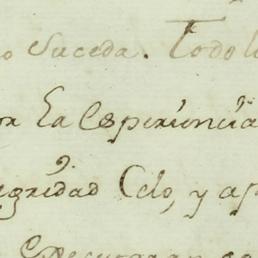 o suceda. Todo l
or la esperiencia
egridad Celo, y ap